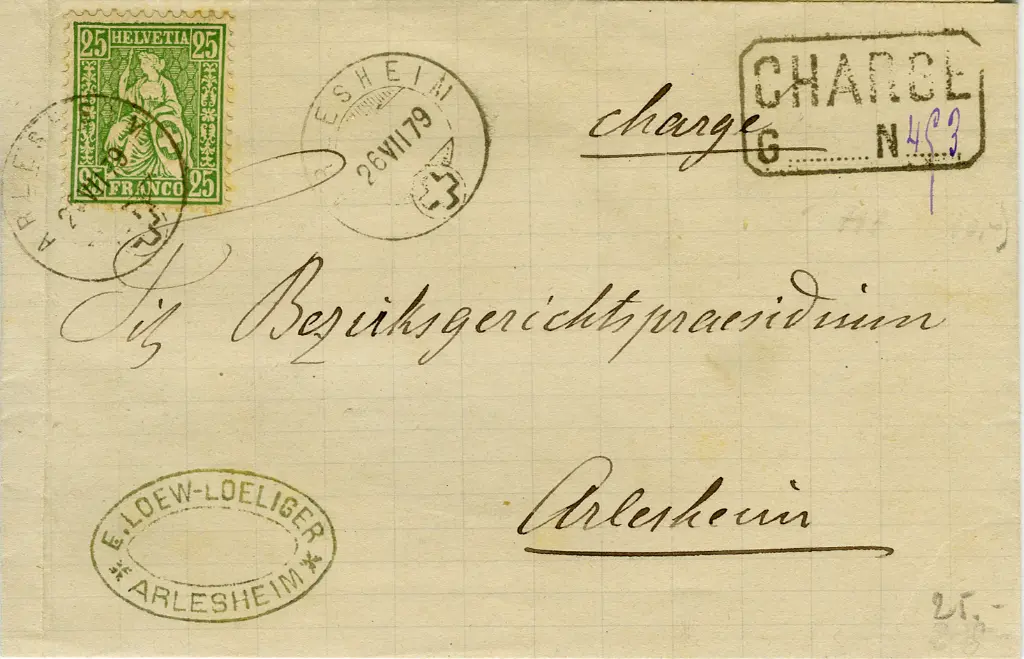 25 HELVETIA 25
25 FRANCO 25
ARLESHEIM
26 VII 79
CHARGE
G N 453
charge
Tit. Bezirksgerichtspraesidium
Arlesheim
E. LOEW-LOELIGER
* ARLESHEIM *
25.-